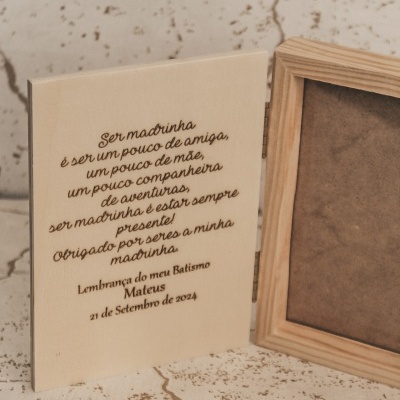 Ser madrinha
é ser um pouco de amiga,
um pouco de mãe,
um pouco companheira
de aventuras,
ser madrinha é estar sempre
presente!
Obrigado por seres a minha
madrinha.
Lembrança do meu Batismo
Mateus
21 de Setembro de 2024